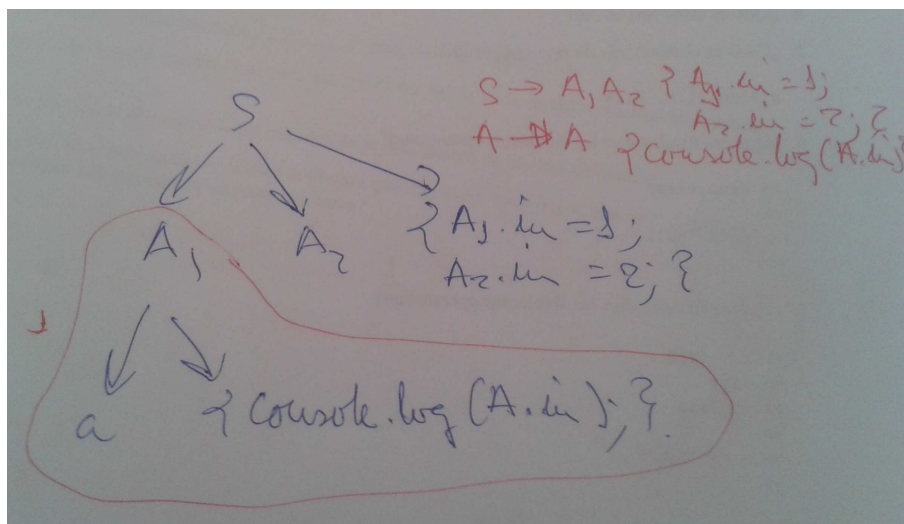 S → A₁ A₂ { A₁.in = 1;
A₂.in = 2; }
A → A { console.log(A.in)
S
A₁ A₂ { A₁.in = 1;
A₂.in = 2; }
1
a { console.log(A.in); }